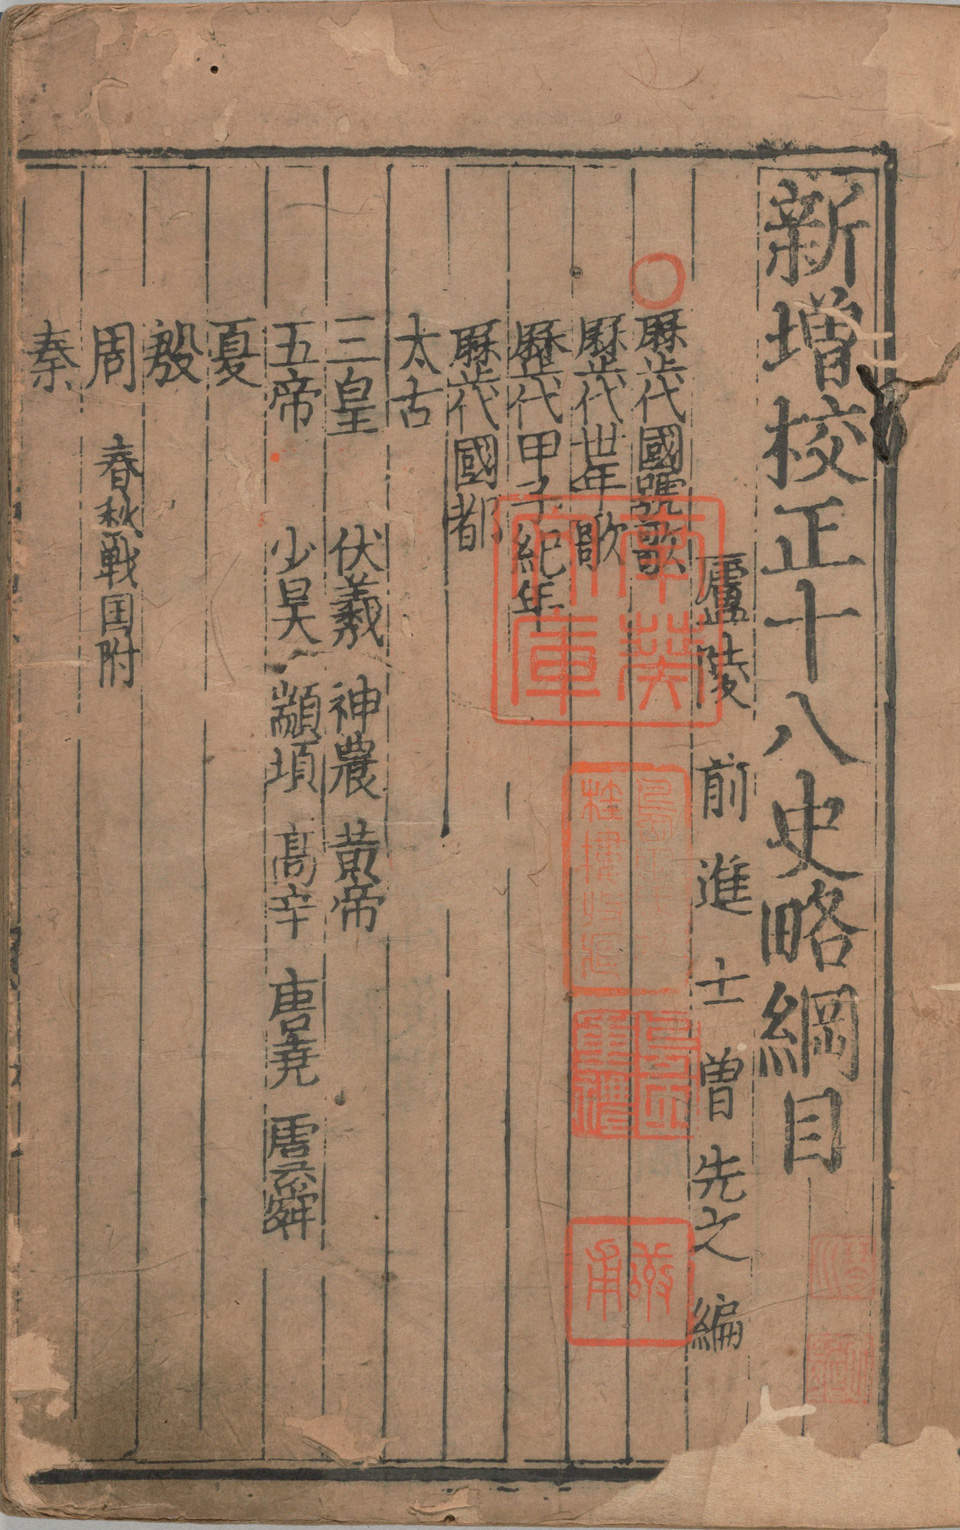 新增校正十八史略綱目
廬陵 前進士曾先之編
歷代國號歌
歷代世年歌
歷代甲子紀年
歷代國都
太古
三皇 伏羲 神農 黃帝
五帝 少昊 顓頊 高辛 唐堯 虞舜
夏
殷
周 春秋戰国附
秦